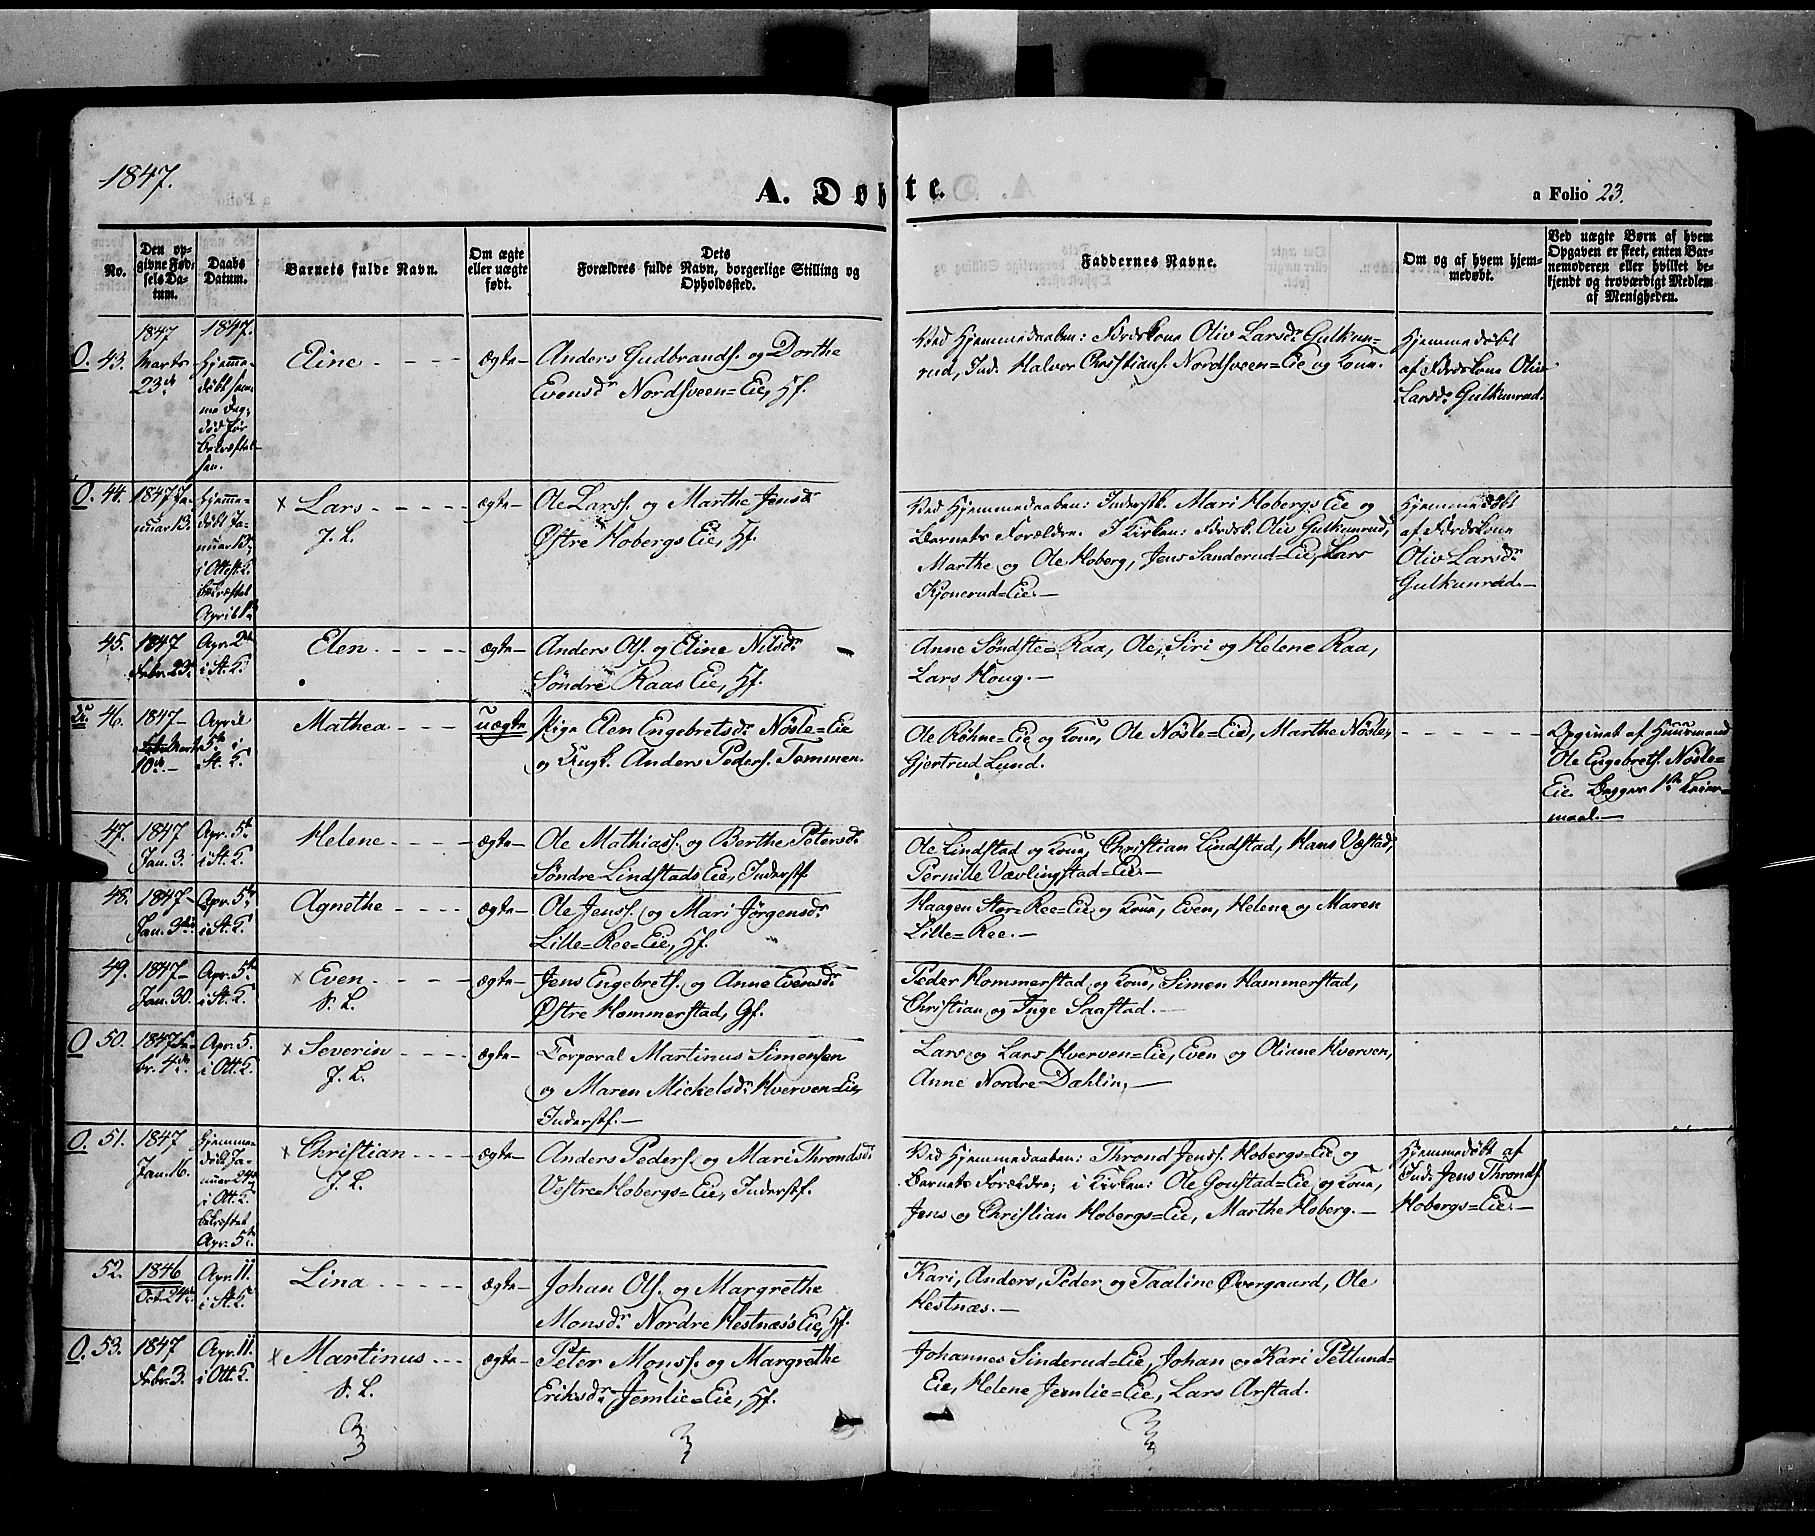 1847.
A. Døbte.
a Folio 23.
No.
Den op-
givne Fød-
sels Da-
tum.
Daabs
Datum.
Barnets fulde Navn.
Om ægte
eller uægte
født.
Dets
Forældres fulde Navn, borgerlige Stilling og
Opholdssted.
Faddernes Navne.
Om og af hvem hjem-
medøbt.
Ved uægte Børn af hvem
Opgaven er skeet, enten Bar-
nemoderen eller hvilket be-
kjendt og troværdigt Medlem
af Menigheden.
O. 43.
1847
Marts
23de
1847.
Hjemme-
døbt sam-
me Dag,
død før
Bekræftel-
sen.
Eline
ægte
Anders Gudbrands. og Dorthe
Evensdr Nordsveen=Eie, Hf.
Ved Hjemmedaaben: Jordskone Oliv Larsdr Gulkun-
rud, Ind. Halvor Christians. Nordsveen=Eie og Kone.
Hjemmedøbt
af Jordskone Oliv
Larsdr Gulkunrud.
O. 44.
1847 Ja-
nuar 13.
Hjemme-
døbt Ja-
nuar 13,
i Ottest. K.
bekræftet
April 1ste
x Lars
J. L.
ægte
Ole Larss. og Marthe Jensdr
Østre Hobergs Eie, Hf.
Ved Hjemmedaaben: Inderstk. Mari Hobergs Eie og
Barnets Foreldre. I Kirken: Jordsk. Oliv Gulkunrud,
Marthe og Ole Hoberg, Jens Sanderud=Eie, Lars
Kjonerud=Eie.—
Hjemmedøbt
af Jordskone
Oliv Larsdr
Gulkunrud.—
45.
1847
Febr. 23.
Apr. 2den
i St. K.
Elen
ægte
Anders Ols. og Eline Nilsdr
Søndre Raas Eie, Hf.
Anne Søndste=Raa, Ole, Siri og Helene Raa,
Lars Houg.—
46.
1847
Marts
10de
April
5te i
St. K.
Mathea
uægte
Pige Elen Engebretsdr Nøsle=Eie
og Ungk. Anders Peders. Tommen.
Ole Røhne=Eie og Kone, Ole Nøsle=Eie, Marthe Nøsle,
Gjertrud Lund.
Opgivet af Huusmand
Ole Engebrets. Nøsle=
Eie. Begges 1ste Leier-
maal.—
47.
1847
Jan. 3.
Apr. 5te
i St. K.
Helene
ægte
Ole Mathiass. og Berthe Petersdr
Søndre Lindstads Eie, Inderstf.
Ole Lindstad og Kone, Christian Lindstad, Hans Væstad,
Pernille Vævlingstad=Eie.—
48.
1847
Jan. 9de
Apr. 5te
i St. K.
Agnethe
ægte
Ole Jenss. og Mari Jørgensdr
Lille=Ree=Eie, Hf.
Haagen Stor=Ree=Eie og Kone, Even, Helene og Maren
Lille=Ree.—
49.
1847
Jan. 30.
Apr. 5te
i St. K.
x Even
S. L.
ægte
Jens Engebrets. og Anne Evensdr
Østre Hommerstad, Gf.
Peder Hommerstad og Kone, Simen Hammerstad,
Christian og Inge Saastad.—
O 50.
1847 Fe-
br. 4de
Apr. 5.
i Ott. K.
x Severin
J. L.
ægte
Corporal Martinus Simensen
og Maren Mickelsdr Hverven=Eie,
Inderstf.—
Lars og Lars Hverven=Eie, Even og Oliane Hverven,
Anne Nordre Dahlin,—
O. 51.
1847
Jan. 16.
Hjemme-
døbt Ja-
nuar 24de
i Ott. K.
bekræftet
Apr. 5te
x Christian
J. L.
ægte
Anders Peders. og Mari Throndsdr
Vestre=Hobergs=Eie, Inderstf.
Ved Hjemmedaaben: Thrond Jenss. Hobergs=Eie og
Barnets Forældre; i Kirken: Ole Gonstad=Eie og Kone,
Jens og Christian Hobergs=Eie, Marthe Hoberg.—
Hjemmedøbt af
Ind. Jens Thronds.
Hobergs=Eie.—
52.
1846
Oct. 24de
Apr. 11.
i St. K.
Lina
ægte
Johan Ols. og Margrethe
Monsdr Nordre Hestnæs's Eie, Hf.
Kari, Anders, Peder og Taaline Øvergaard, Ole
Hestnæs.—
O. 53.
1847
Febr. 3.
Apr. 11.
i Ott. K.
x Martinus
S. L.
ægte
Peter Monss. og Margrethe
Eriksdr Jemlie=Eie, Hf.
Johannes Sinderud=Eie, Johan og Kari Petlund=
Eie, Helene Jemlie=Eie, Lars Arstad.